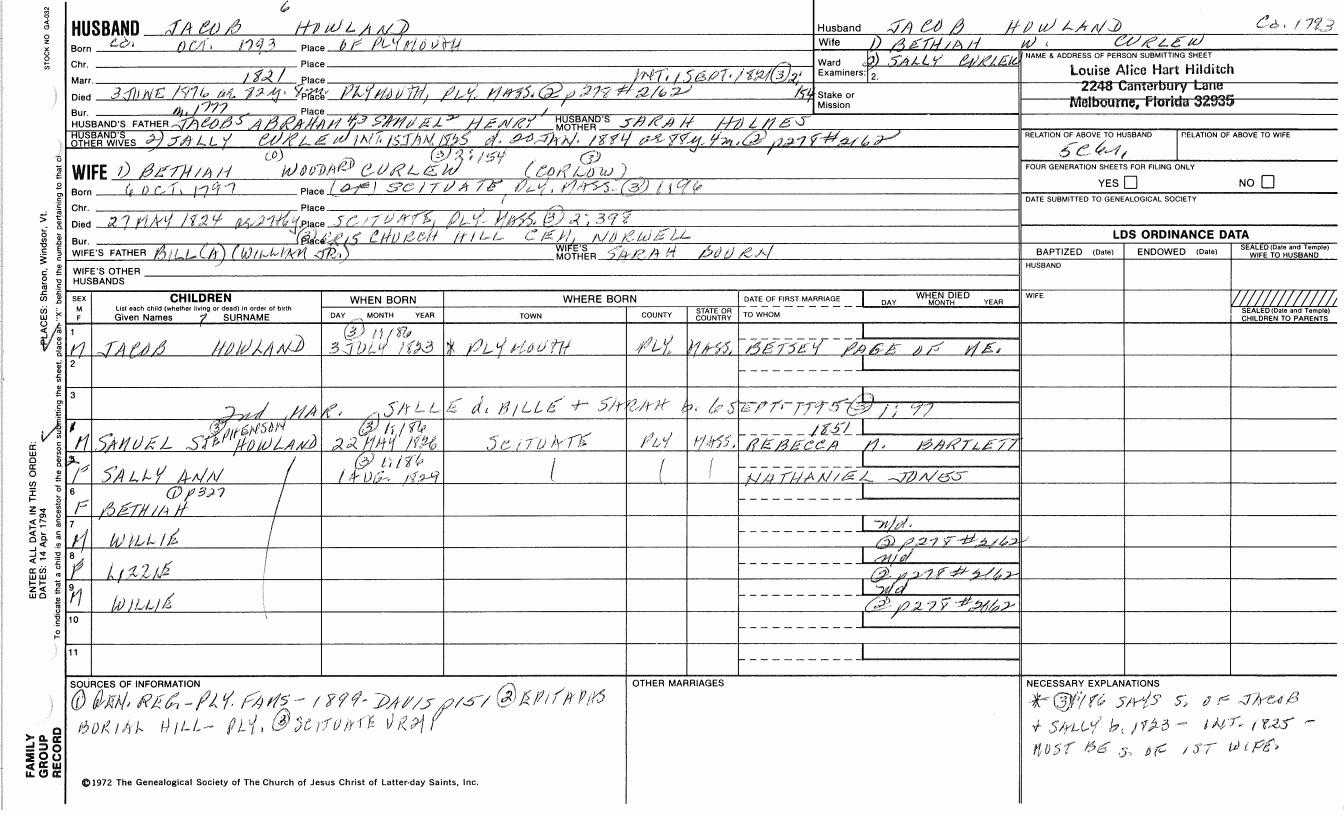 6
STOCK NO GA-032
HUSBAND JACOB HOWLAND
Born Ca. OCT. 1793 Place OF PLYMOUTH
Chr. Place
Marr. 1821 Place INT. 1 SEPT. 1821 (3) 2: 154
Died 3 JUNE 1876 ae. 82 y. 8 m. Place PLYMOUTH, PLY. MASS. (2) p278 #2162
Bur. m. 1777 Place
HUSBAND'S FATHER JACOB5 ABRAHAM4,3 SAMUEL2 HENRY1 HUSBAND'S MOTHER SARAH HOLMES
HUSBAND'S OTHER WIVES 2) SALLY CURLEW INT. 15 JAN. 1825 d. 20 JAN. 1884 ae 88y. 4m. (2) p278 #2162
(0) (3) 2:154 (3)
WIFE 1) BETHIAH WOODARD CURLEW (CORLOW)
Born 6 OCT. 1797 Place (OF) SCITUATE PLY. MASS. (3) 1:96
Chr. Place
Died 27 MAY 1824 Place SCITUATE, PLY. MASS. (3) 2:398
Bur. Place CHURCH HILL CEM, NORWELL
WIFE'S FATHER BILL(A) (WILLIAM JR.) WIFE'S MOTHER SARAH BOURN
WIFE'S OTHER HUSBANDS
Husband JACOB HOWLAND Ca. 1793
Wife 1) BETHIAH W. CURLEW
Ward 2) SALLY CURLEW
Examiners: 2.
Stake or Mission
NAME & ADDRESS OF PERSON SUBMITTING SHEET
Louise Alice Hart Hilditch
2248 Canterbury Lane
Melbourne, Florida 32935
RELATION OF ABOVE TO HUSBAND RELATION OF ABOVE TO WIFE
FOUR GENERATION SHEETS FOR FILING ONLY
YES NO
DATE SUBMITTED TO GENEALOGICAL SOCIETY
LDS ORDINANCE DATA
BAPTIZED (Date) ENDOWED (Date) SEALED (Date and Temple) WIFE TO HUSBAND
HUSBAND
WIFE
SEALED (Date and Temple) CHILDREN TO PARENTS
SEX M F CHILDREN List each child (whether living or dead) in order of birth Given Names 7 SURNAME
WHEN BORN DAY MONTH YEAR
WHERE BORN TOWN COUNTY STATE OR COUNTRY
DATE OF FIRST MARRIAGE TO WHOM
WHEN DIED DAY MONTH YEAR
(3) 1:186
1 M JACOB HOWLAND 3 JULY 1823 * PLYMOUTH PLY. MASS. BETSEY PAGE OF ME.
2
3
2nd MAR. SALLE d. BILLE + SARAH b. 6 SEPT. 1795 (3) 1:97
(3) STEPHENSON (3) 1:186 1851
M SAMUEL HOWLAND 22 MAY 1826 SCITUATE PLY MASS. REBECCA M. BARTLETT
(3) 1:186
F SALLY ANN 1 AUG. 1829 NATHANIEL JONES
6 (1) p327
F BETHIAH
7 n/d.
M WILLIE (2) p278 #2162
8 n/d
F LIZZIE (2) p278 #2162
9 n/d
M WILLIE (2) p278 #2162
10
11
SOURCES OF INFORMATION
(1) GEN. REG.-PLY. FAMS-1899-DAVIS p151 (2) EPITAPHS
BURIAL HILL-PLY. (3) SCITUATE VR
OTHER MARRIAGES
NECESSARY EXPLANATIONS
*-(3) 1:186 SAYS S. OF JACOB
+ SALLY b. 1823 - INT. 1825 -
MUST BE s. OF 1ST WIFE.
©1972 The Genealogical Society of The Church of Jesus Christ of Latter-day Saints, Inc.
PLACES: Sharon, Windsor, Vt.
ENTER ALL DATA IN THIS ORDER:
DATES: 14 Apr 1794
To indicate that a child is an ancestor of the person submitting the sheet, place an "X" behind the number pertaining to that child
FAMILY GROUP RECORD